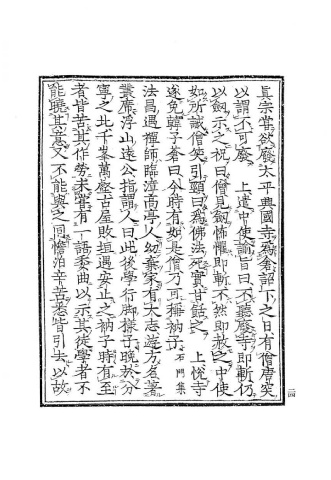 眞宗甞欲廢太平興國寺爲倉詔下之日有僧唐突
以謂不可廢　上遣中使諭旨曰不聽廢寺即斬仍
以劔示之祝曰僧見劔怖懼即斬不然即赦之中使
如所誡僧笑引頸曰爲佛法死實甘舐之　上悅寺
遂免韓子蒼曰今時有如是僧乃可稱衲子 石門集
法昌遇禪師臨漳高亭人幼棄家有大志遊方名著
叢席浮山遠公指謂人曰此後學行脚樣子晚於分
寧之北千峯萬壑古屋敗垣遇安止之衲子時有至
者皆苦其作勞未甞有一語委曲以示其徒學者不
能曉其意又不能與之同憺泊辛苦悉皆引去以故